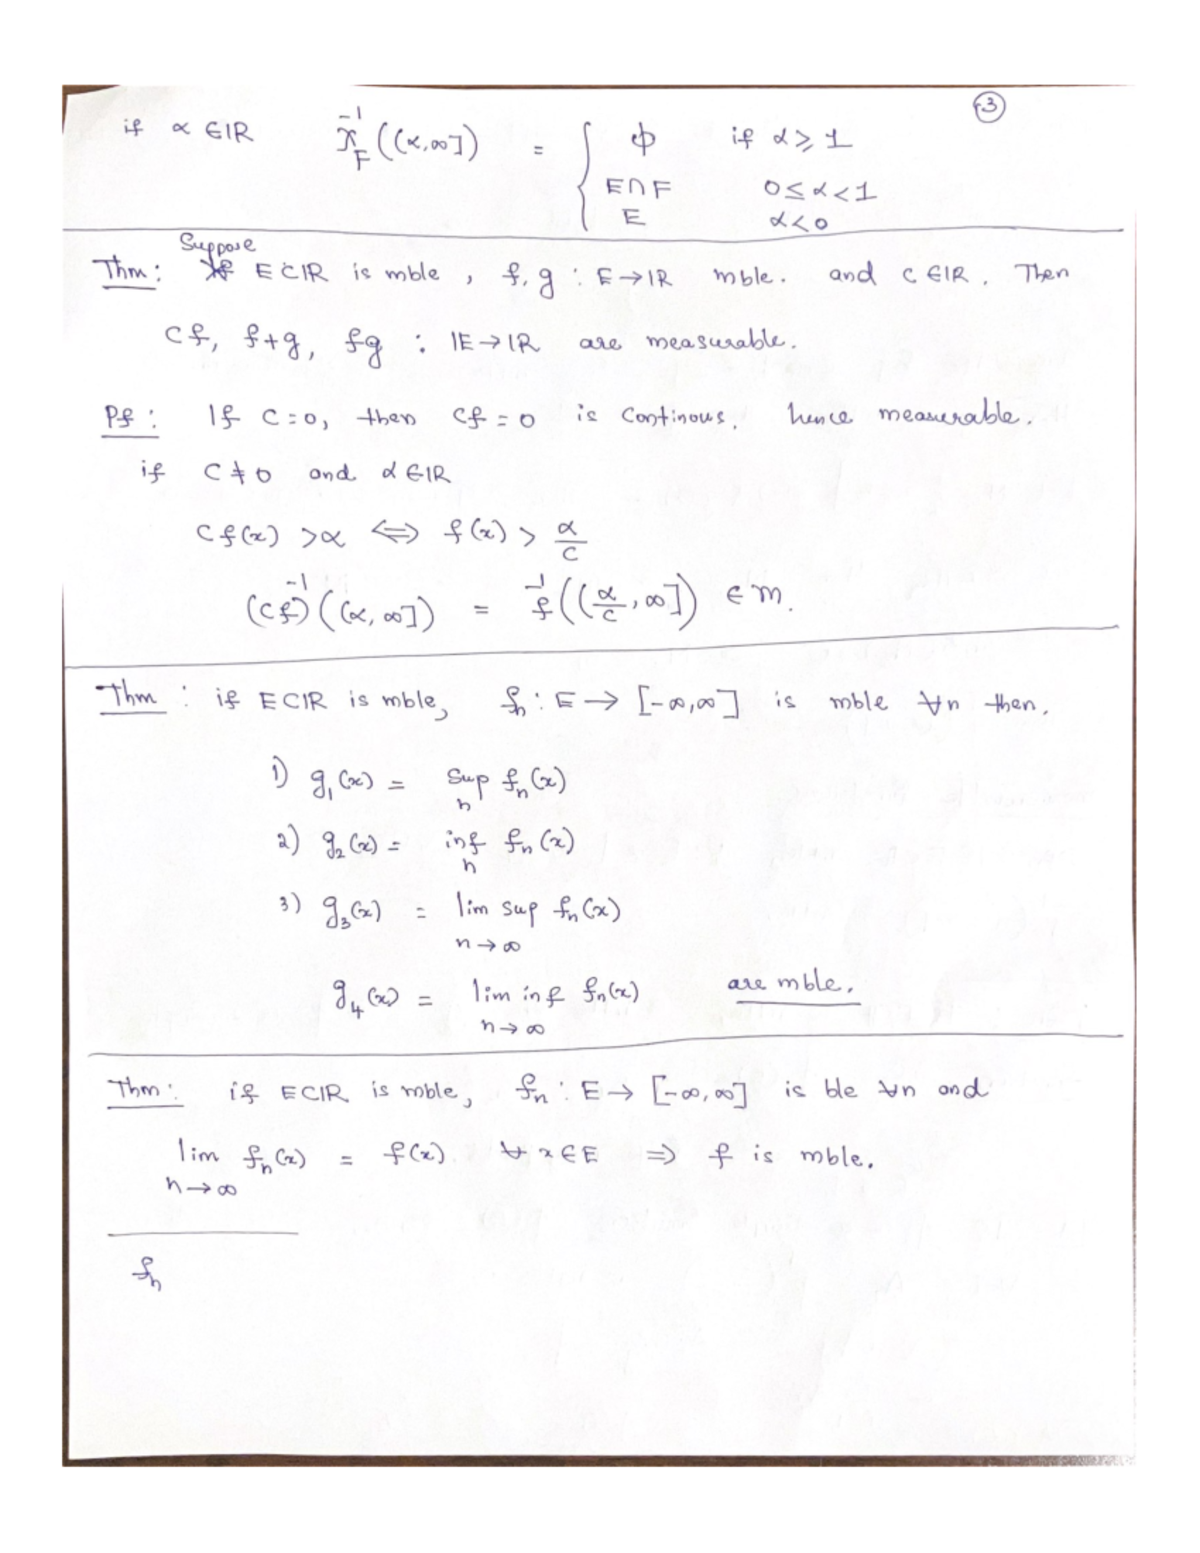 ③
if α ∈ IR χ_F^{-1}((α,∞]) = { φ if α ⩾ 1
E∩F 0 ≤ α < 1
E α < 0
Suppose
Thm: E ⊂ IR is mble, f, g : E → IR mble. and C ∈ IR. Then
cf, f+g, fg : IE → IR are measurable.
Pf: If C = 0, then cf = 0 is continous. hence measurable.
if C ≠ 0 and α ∈ IR
C f(x) > α ⟺ f(x) > α/C
(cf)^{-1}((α,∞]) = f^{-1}((α/C,∞]) ∈ m.
Thm : if E ⊂ IR is mble, f_n : E → [-∞,∞] is mble ∀n then.
1) g_1(x) = sup_n f_n(x)
2) g_2(x) = inf_n f_n(x)
3) g_3(x) = lim sup f_n(x)
n → ∞
g_4(x) = lim inf f_n(x) are mble.
n → ∞
Thm: if E ⊂ IR is mble, f_n : E → [-∞,∞] is ble ∀n and
lim f_n(x) = f(x) ∀ x ∈ E ⇒ f is mble.
n → ∞
f_n